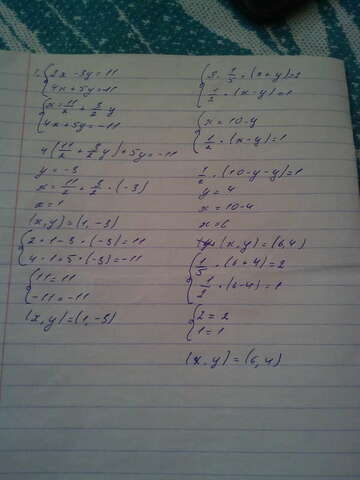 1. {2x - 3y = 11
{4x + 5y = -11
{x = 11/2 + 3/2 y
{4x + 5y = -11
4(11/2 + 3/2 y) + 5y = -11
y = -3
x = 11/2 + 3/2 · (-3)
x = 1
(x, y) = (1, -3)
{2 · 1 - 3 · (-3) = 11
{4 · 1 + 5 · (-3) = -11
{11 = 11
{-11 = -11
(x, y) = (1, -3)
3. {1/5 · (x + y) = 2
{1/2 · (x - y) = 1
{x = 10 - y
{1/2 · (x - y) = 1
1/2 · (10 - y - y) = 1
y = 4
x = 10 - 4
x = 6
(x, y) = (6, 4)
{1/5 · (6 + 4) = 2
{1/2 · (6 - 4) = 1
{2 = 2
{1 = 1
(x, y) = (6, 4)